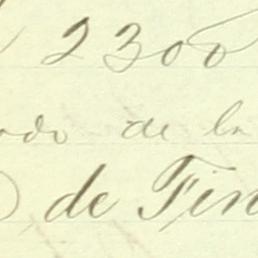 2300
de la
de Fin